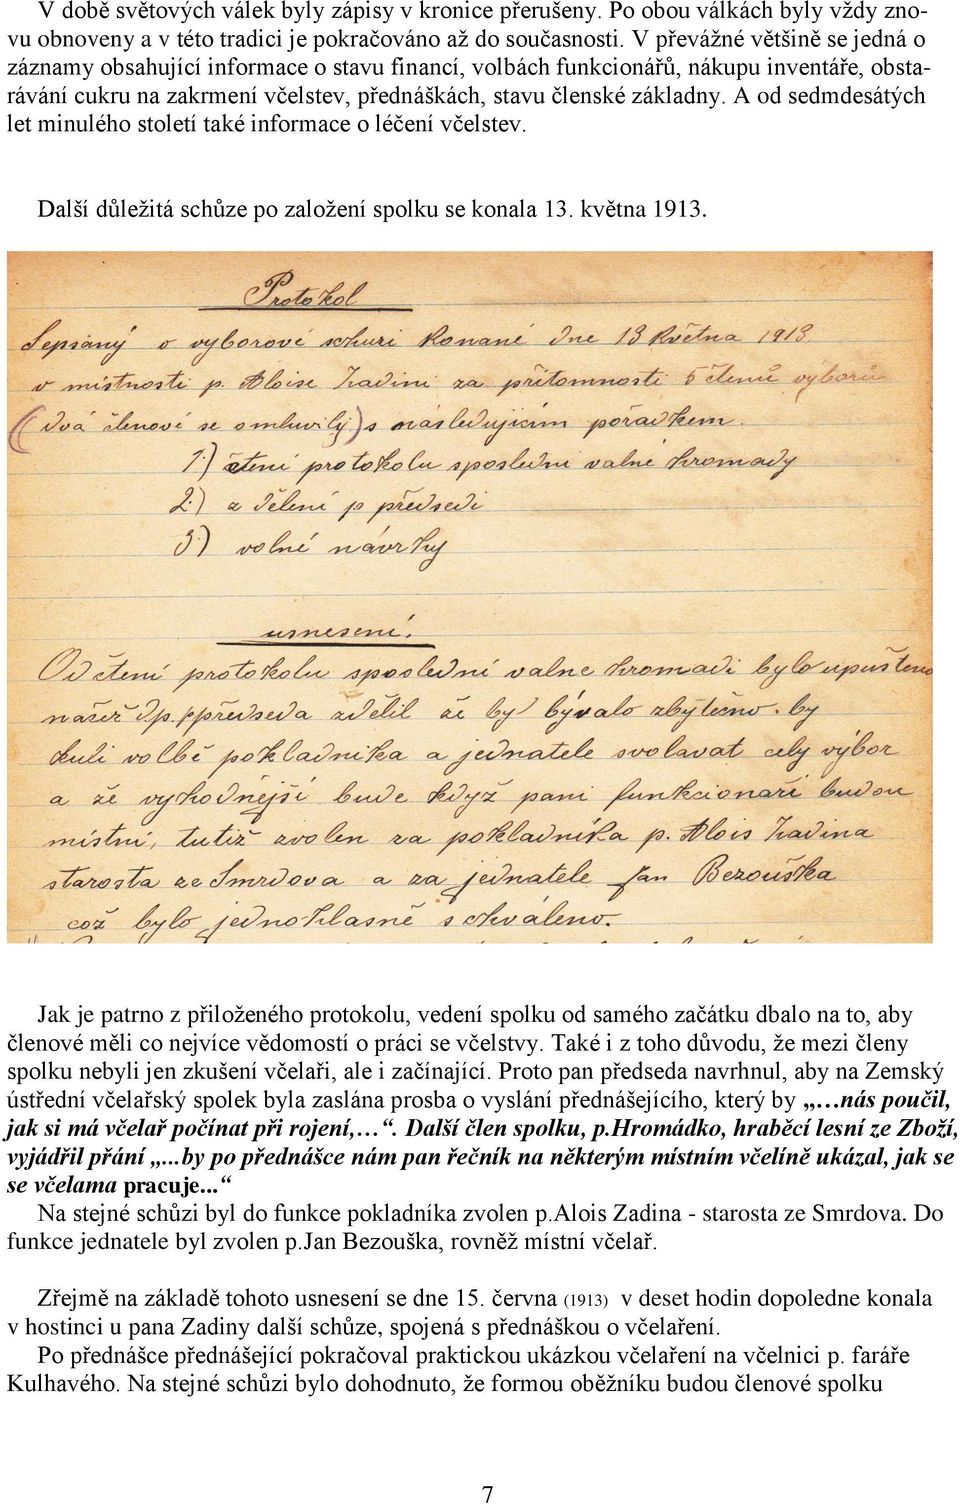 V době světových válek byly zápisy v kronice přerušeny. Po obou válkách byly vždy zno-
vu obnoveny a v této tradici je pokračováno až do současnosti. V převážné většině se jedná o
záznamy obsahující informace o stavu financí, volbách funkcionářů, nákupu inventáře, obsta-
rávání cukru na zakrmení včelstev, přednáškách, stavu členské základny. A od sedmdesátých
let minulého století také informace o léčení včelstev.
Další důležitá schůze po založení spolku se konala 13. května 1913.
Protokol
Sepsaný o vyborové schuzi konané dne 13 května 1913.
v místnosti p. Aloise Zadini za přítomnosti 5 členů vyborů
(dvá členové se omluvily) s následujícím pořadkem.
1.) čtení protokolu sposledni valné hromady
2.) zdělení p předsedi
3.) volné návrhy
usnesení.
Od čtení protokolu sposlední valne hromadi bylo upušteno
načež dp. předseda zdělil že by bývalo zbytečno. by
kuli volbě pokladníka a jednatele svolavat cely výbor
a že vyhodnější bude když pani funkcionaři budou
místní, tutiž zvolen za pokladníka p. Alois Zadina
starosta ze Smrdova a za jednatele Jan Bezouška
což bylo jednohlasně schváleno.
Jak je patrno z přiloženého protokolu, vedení spolku od samého začátku dbalo na to, aby
členové měli co nejvíce vědomostí o práci se včelstvy. Také i z toho důvodu, že mezi členy
spolku nebyli jen zkušení včelaři, ale i začínající. Proto pan předseda navrhnul, aby na Zemský
ústřední včelařský spolek byla zaslána prosba o vyslání přednášejícího, který by „…nás poučil,
jak si má včelař počínat při rojení,…“. Další člen spolku, p.Hromádko, hraběcí lesní ze Zboží,
vyjádřil přání „...by po přednášce nám pan řečník na některým místním včelíně ukázal, jak se
se včelama pracuje...“
Na stejné schůzi byl do funkce pokladníka zvolen p.Alois Zadina - starosta ze Smrdova. Do
funkce jednatele byl zvolen p.Jan Bezouška, rovněž místní včelař.
Zřejmě na základě tohoto usnesení se dne 15. června (1913) v deset hodin dopoledne konala
v hostinci u pana Zadiny další schůze, spojená s přednáškou o včelaření.
Po přednášce přednášející pokračoval praktickou ukázkou včelaření na včelnici p. faráře
Kulhavého. Na stejné schůzi bylo dohodnuto, že formou oběžníku budou členové spolku
7